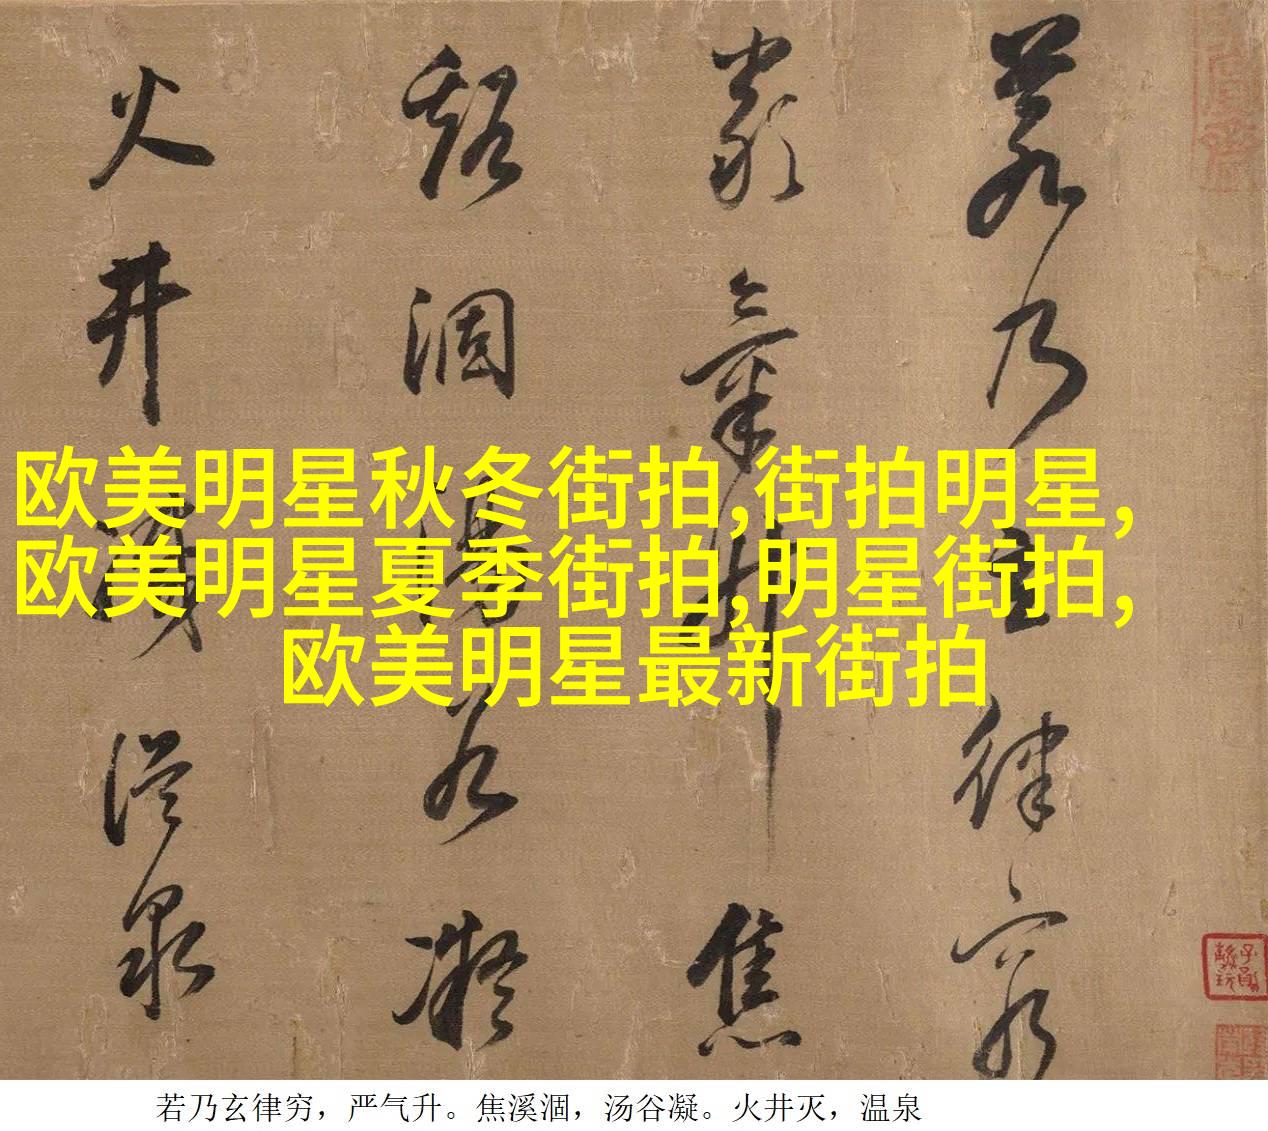 若乃玄律穷
严气升焦
谿涸汤谷凝
火井灭温泉
欧美明星秋冬街拍,街拍明星,
欧美明星夏季街拍,明星街拍,
欧美明星最新街拍
若乃玄律穷，严气升。焦溪涸，汤谷凝。火井灭，温泉